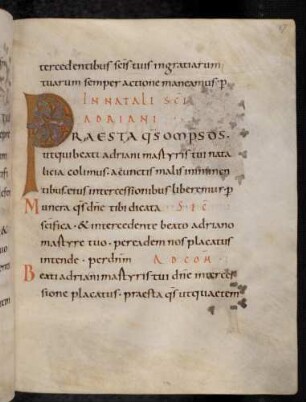 tercedentibus scis tuis ingratiarum
tuarum semper actione maneamus. p
IN NATALI SCI
ADRIANI
PRAESTA QS OMPS DS.
ut qui beati adriani martyris tui nata
licia colimus. a cunctis malis inminen
tibus eius intercessionibus liberemur. p
Munera qs dne tibi dicata S. P. C.
scifica. & intercedente beato adriano
martyre tuo. per eadem nos placatus
intende. per dnm AD COM.
Beati adriani martyris tui dne interces
sione placatus. praesta qs ut quae tem